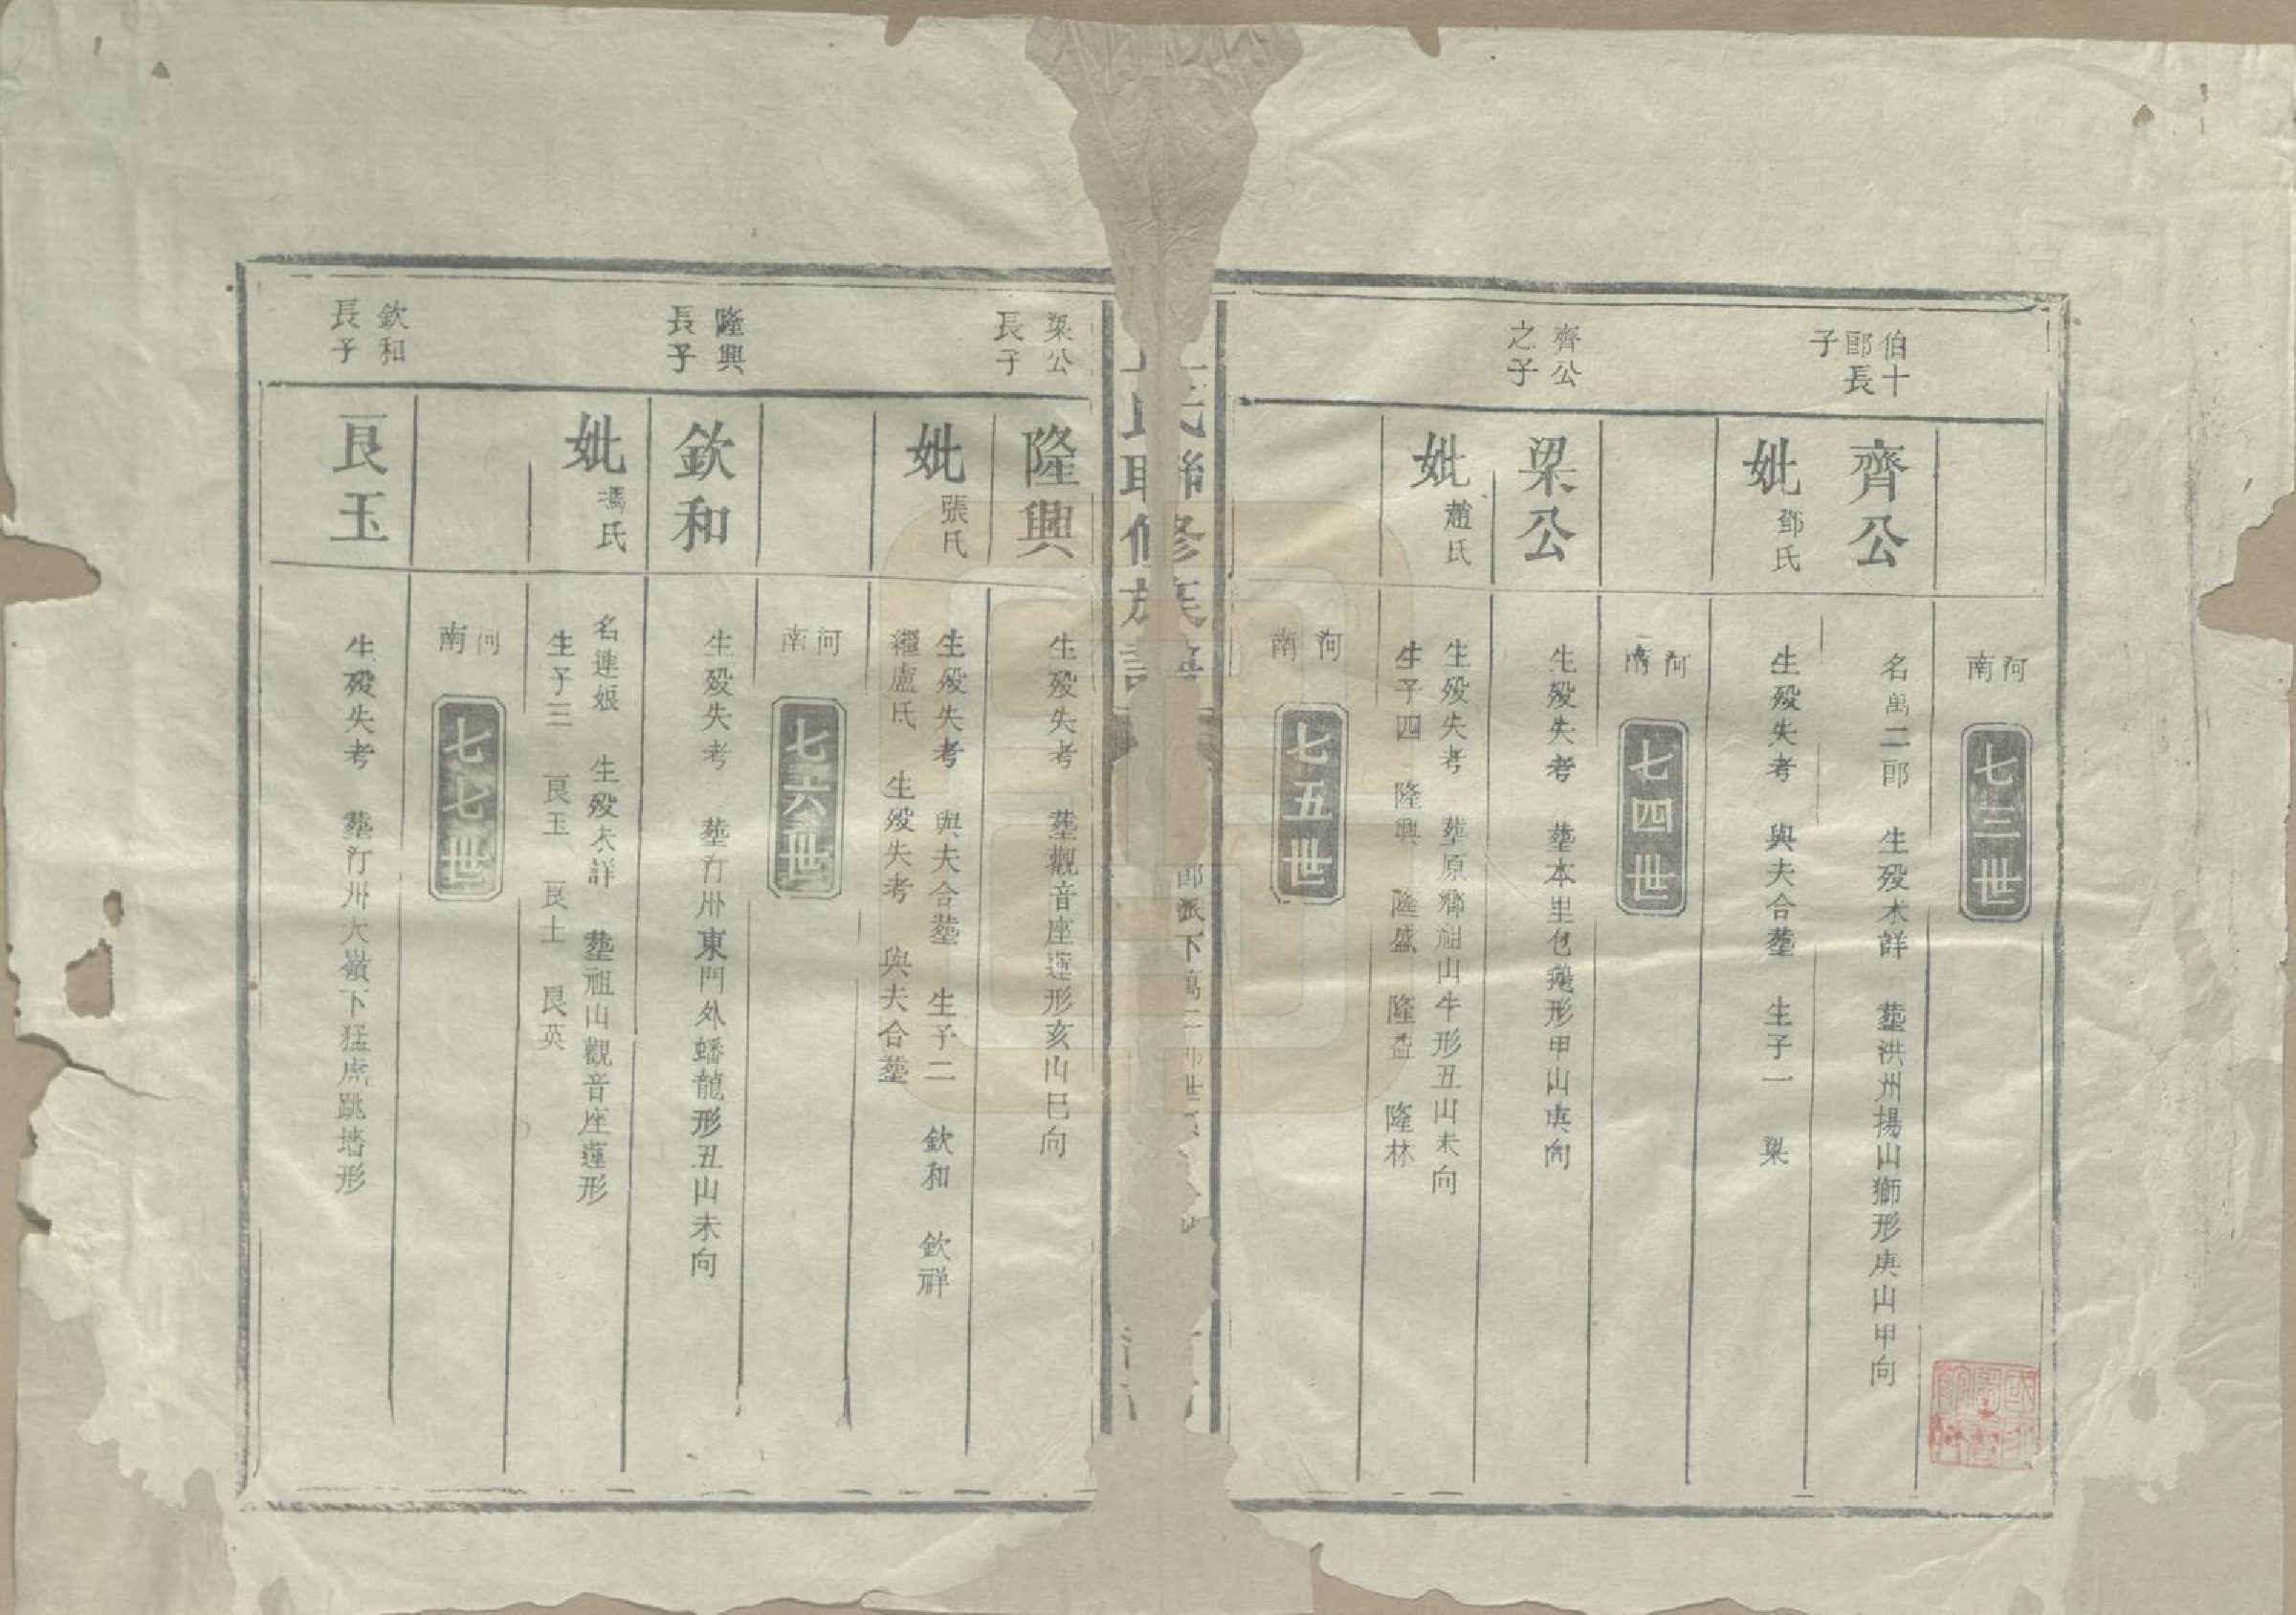 河南
七三世
伯十郎長子
齊公
名萬二郎 生殁未詳 塟洪州揚山獅形庚山甲向
妣鄧氏
生殁失考 與夫合塟 生子一 梁
河南
七四世
齊公之子
梁公
生殁失考 塟本里包𪃿形甲山庚向
妣趙氏
生殁失考 塟原鄉祖山牛形丑山未向
生子四 隆興 隆盛 隆益 隆林
河南
七五世
氏聯修族譜
郎派下萬二郎世系
梁公長子
隆興
生殁失考 塟觀音座蓮形亥山巳向
妣張氏
生殁失考 與夫合塟 生子二 欽和 欽祥
繼盧氏 生殁失考 與夫合塟
河南
七六世
隆興長子
欽和
生殁失考 塟汀州東門外蟠龍形丑山未向
妣馮氏
名連娘 生殁未詳 塟祖山觀音座蓮形
生子三 艮玉 艮士 艮英
河南
七七世
欽和長子
艮玉
生殁失考 塟汀州大嶺下猛虎跳墻形